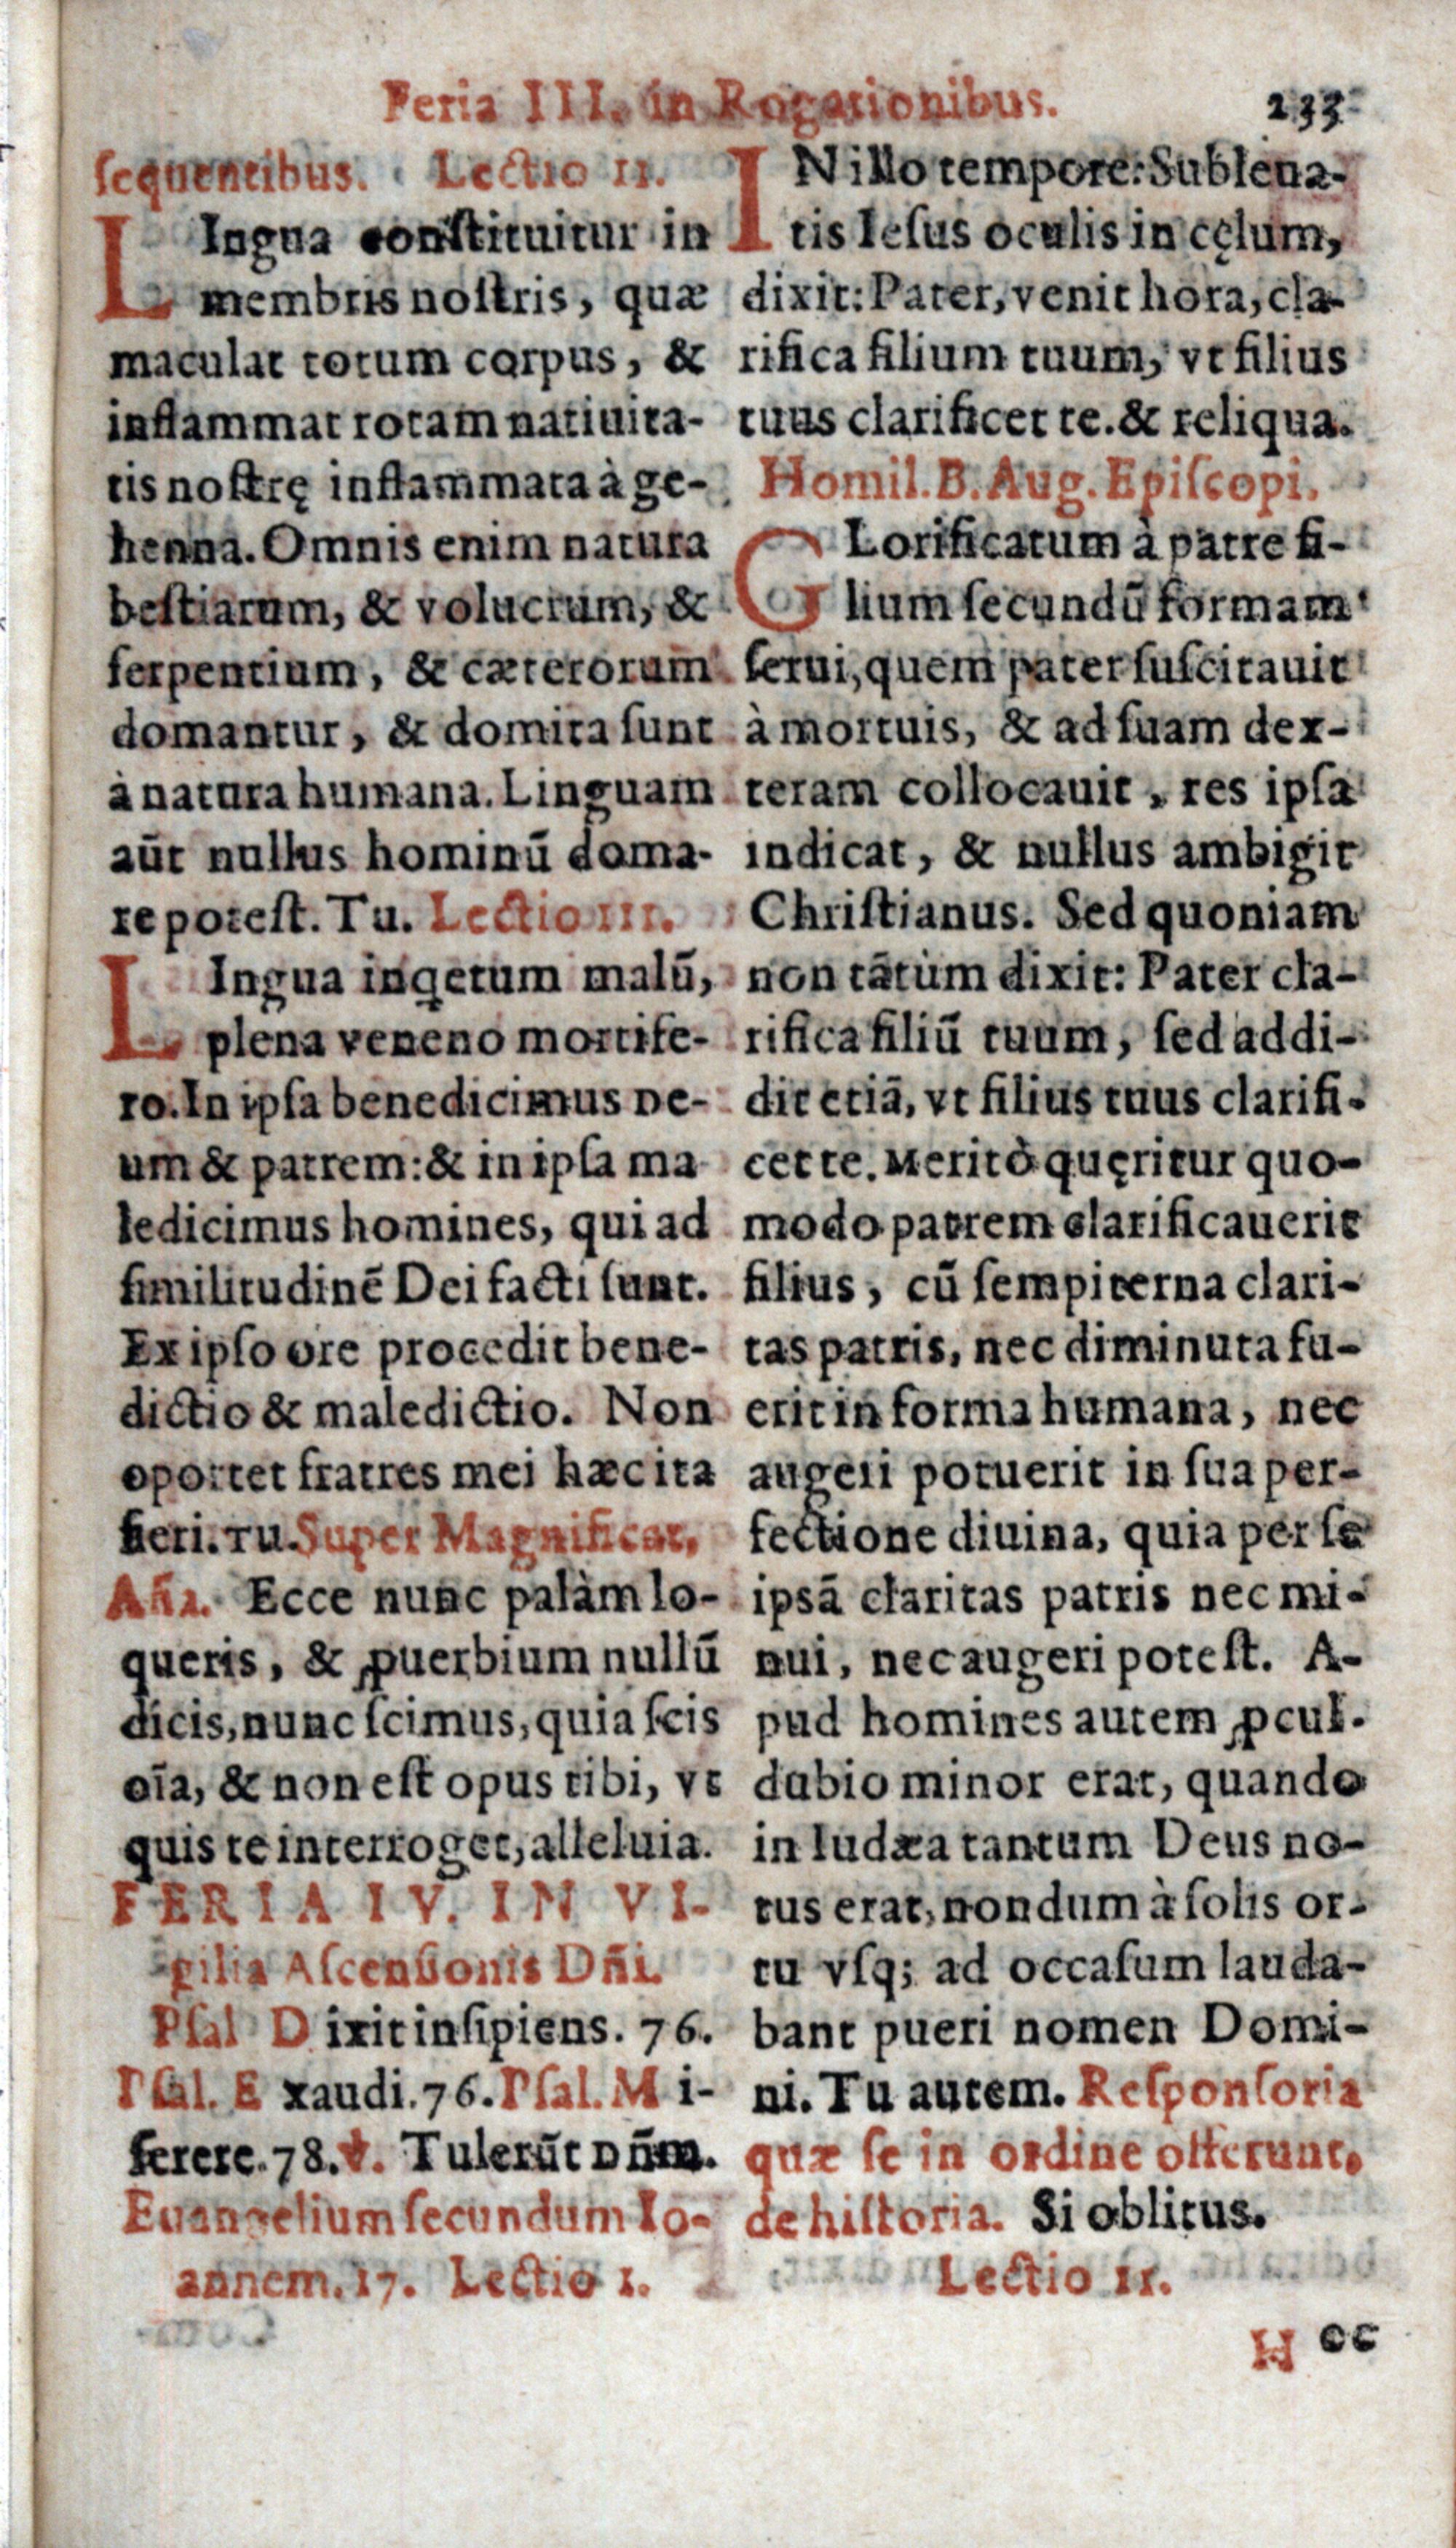 Feria III. in Rogationibus. 233
ſequentibus. Lectio II.
LIngua conſtituitur in
membris noſtris, quæ
maculat totum corpus, &
inflammat rotam natiuita-
tis noſtrę inflammata à ge-
henna. Omnis enim natura
beſtiarum, & volucrum, &
ſerpentium, & cæterorum
domantur, & domita ſunt
à natura humana. Linguam
aūt nullus hominū doma-
re poteſt. Tu. Lectio III.
LIngua inqetum malū,
plena veneno mortife-
ro. In ipſa benedicimus De-
um & patrem: & in ipſa ma
ledicimus homines, qui ad
ſimilitudinē Dei facti ſunt.
Ex ipſo ore procedit bene-
dictio & maledictio. Non
oportet fratres mei hæc ita
fieri. Tu. Super Magnificat,
Añа. Ecce nunc palàm lo-
queris, & ꝓuerbium nullū
dicis, nunc ſcimus, quia ſcis
oīa, & non eſt opus tibi, vt
quis te interroget, alleluia.
FERIA IV. IN VI-
gilia Aſcenſionis Dñi.
Pſal Dixit inſipiens. 76.
Pſal. Exaudi. 76. Pſal. Mi-
ſerere. 78. ℣. Tulerūt Dñm.
Euangelium ſecundum Io-
annem. 17. Lectio I.
IN illo tempore: Subleua-
tis Ieſus oculis in cęlum,
dixit: Pater, venit hora, cla-
rifica filium tuum, vt filius
tuus clarificet te. & reliqua.
Homil. B. Aug. Epiſcopi.
GLorificatum à patre fi-
lium ſecundū formam
ſerui, quem pater ſuſcitauit
à mortuis, & ad ſuam dex-
teram collocauit, res ipſa
indicat, & nullus ambigit
Chriſtianus. Sed quoniam
non tātùm dixit: Pater cla-
rifica filiū tuum, ſed addi-
dit etiā, vt filius tuus clarifi-
cet te. Meritò quęritur quo-
modo patrem clarificauerit
filius, cū ſempiterna clari-
tas patris, nec diminuta fu-
erit in forma humana, nec
augeri potuerit in ſua per-
fectione diuina, quia per ſe
ipsā claritas patris nec mi-
nui, nec augeri poteſt. A-
pud homines autem ꝓcul-
dubio minor erat, quando
in Iudæa tantum Deus no-
tus erat, nondum à ſolis or-
tu vſq; ad occaſum lauda-
bant pueri nomen Domi-
ni. Tu autem. Reſponſoria
quæ ſe in ordine offerunt,
de hiſtoria. Si oblitus.
Lectio II.
H oc